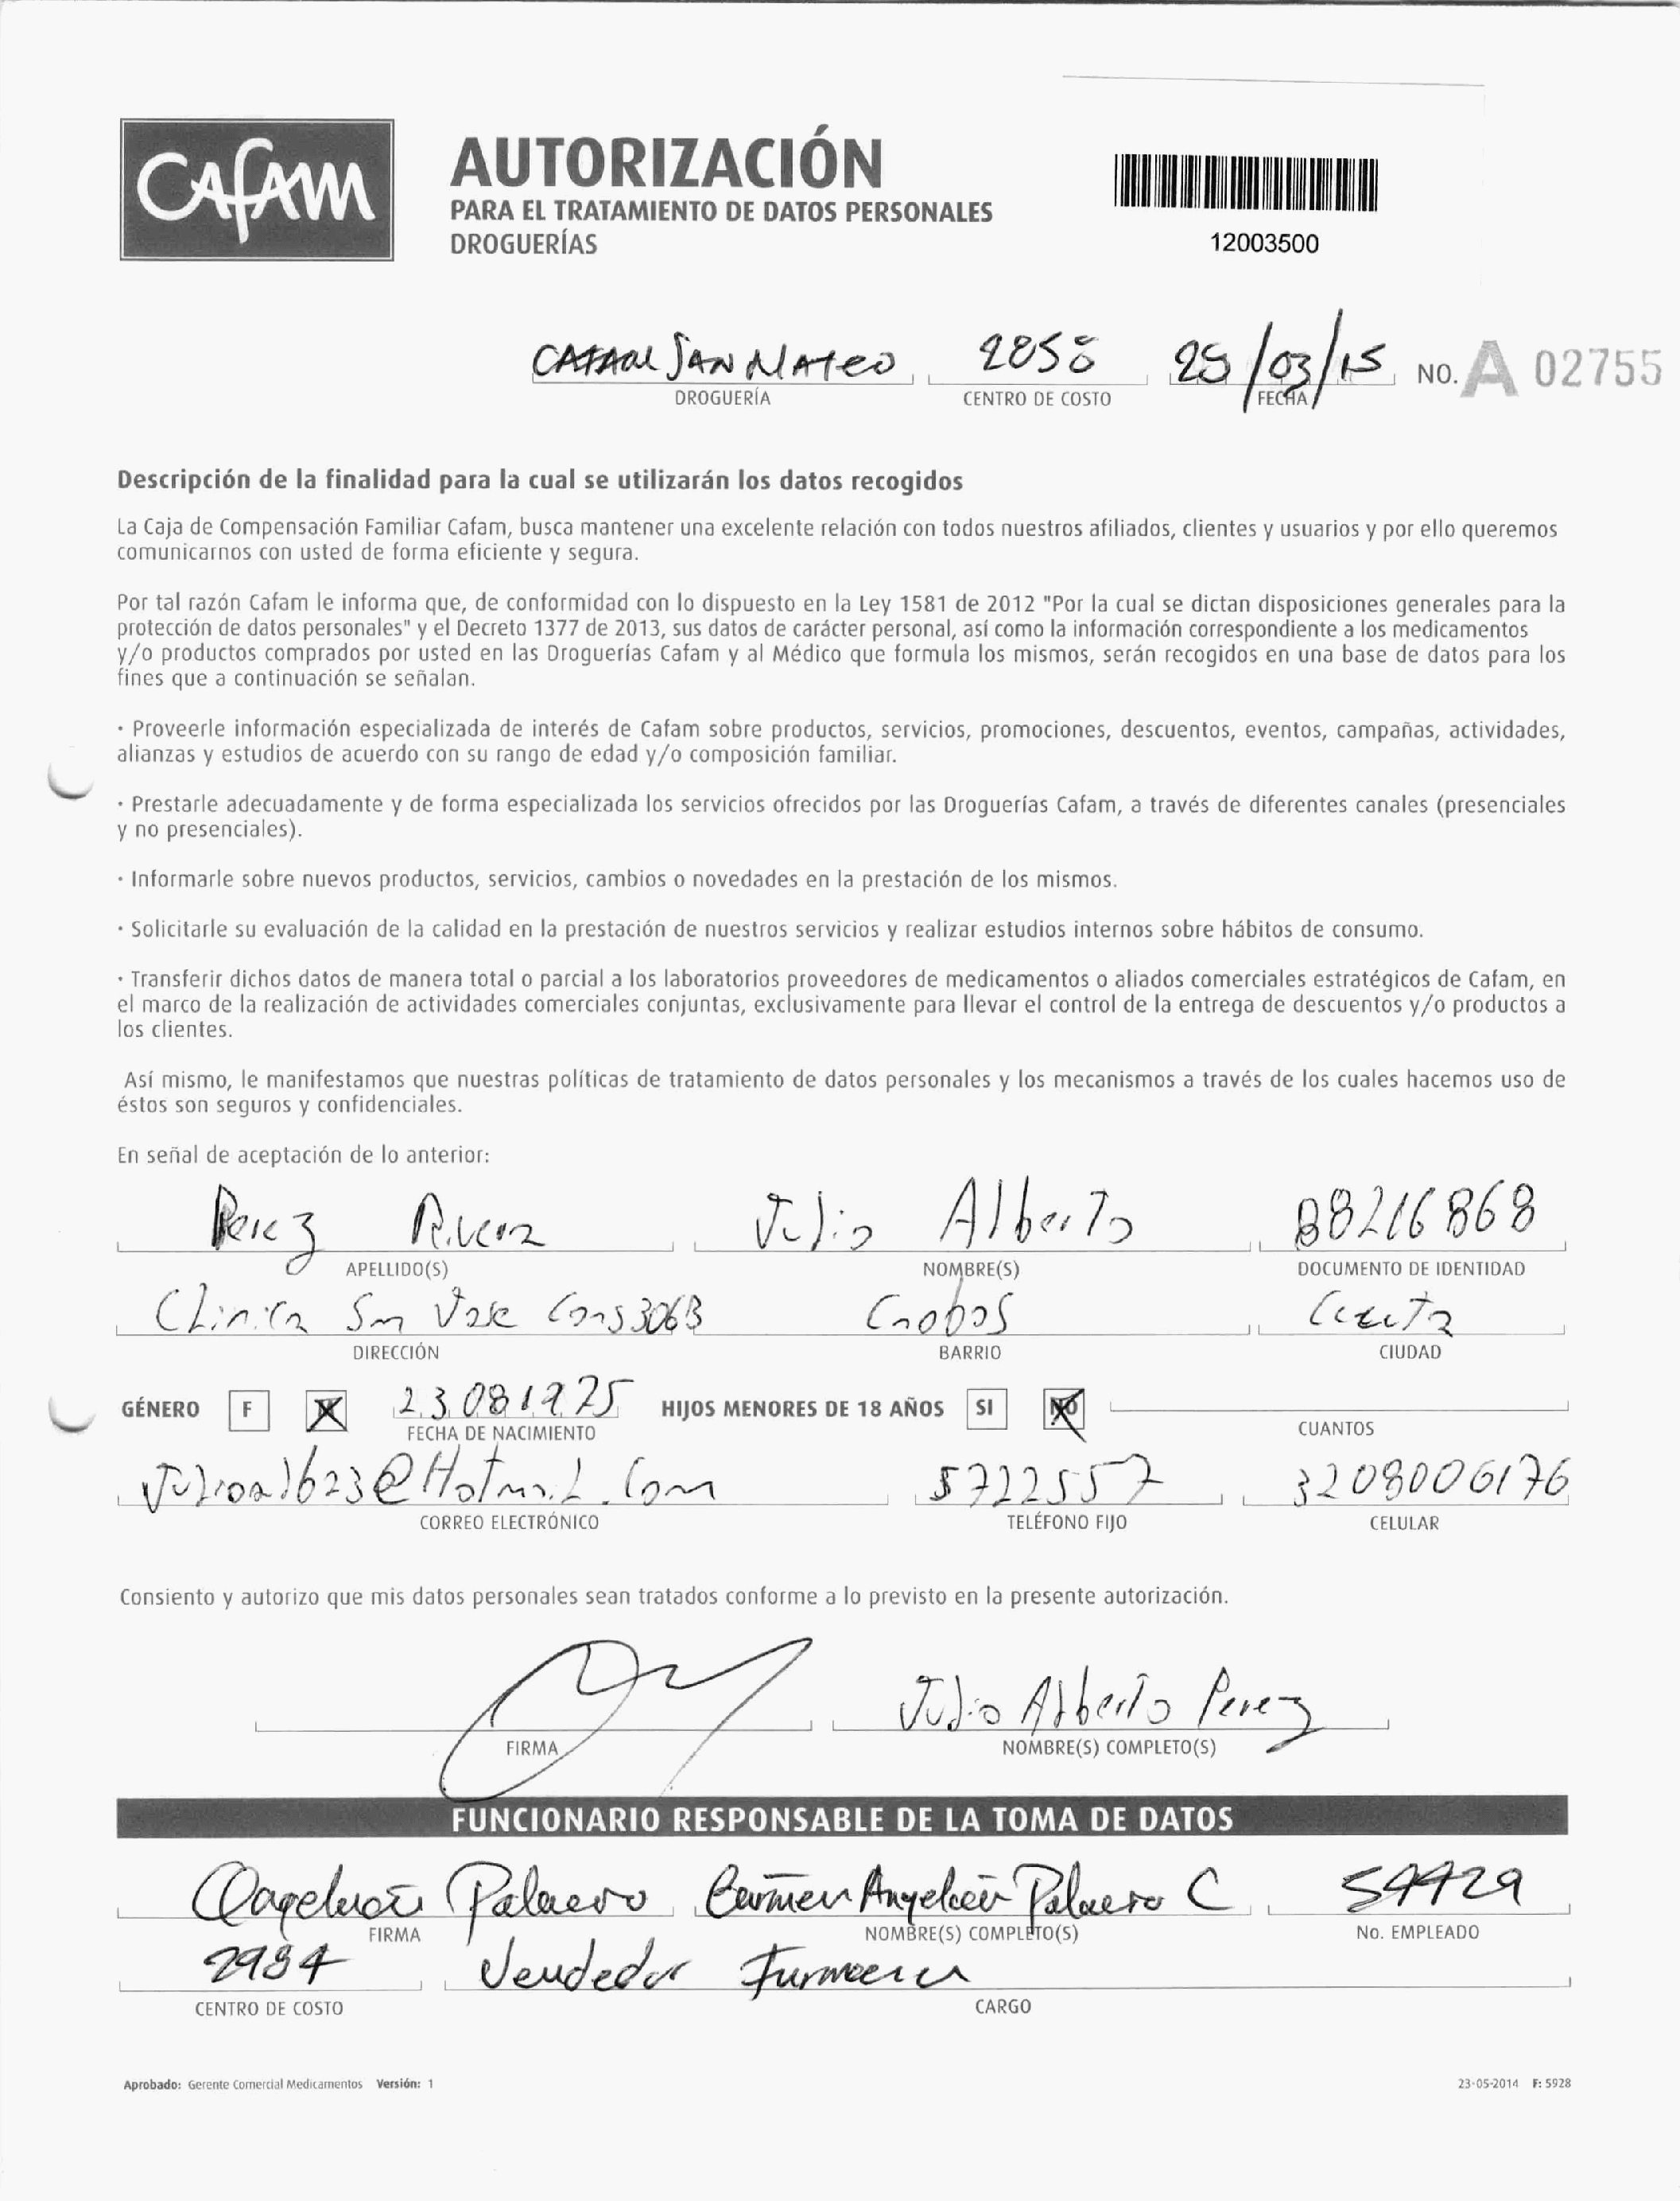 CAFAM
AUTORIZACIÓN
PARA EL TRATAMIENTO DE DATOS PERSONALES
DROGUERÍAS
12003500
CAFAM SAN MATEO 2858 25/03/15 NO. A 02755
DROGUERÍA CENTRO DE COSTO FECHA
Descripción de la finalidad para la cual se utilizarán los datos recogidos
La Caja de Compensación Familiar Cafam, busca mantener una excelente relación con todos nuestros afiliados, clientes y usuarios y por ello queremos
comunicarnos con usted de forma eficiente y segura.
Por tal razón Cafam le informa que, de conformidad con lo dispuesto en la Ley 1581 de 2012 "Por la cual se dictan disposiciones generales para la
protección de datos personales" y el Decreto 1377 de 2013, sus datos de carácter personal, así como la información correspondiente a los medicamentos
y/o productos comprados por usted en las Droguerías Cafam y al Médico que formula los mismos, serán recogidos en una base de datos para los
fines que a continuación se señalan.
· Proveerle información especializada de interés de Cafam sobre productos, servicios, promociones, descuentos, eventos, campañas, actividades,
alianzas y estudios de acuerdo con su rango de edad y/o composición familiar.
· Prestarle adecuadamente y de forma especializada los servicios ofrecidos por las Droguerías Cafam, a través de diferentes canales (presenciales
y no presenciales).
· Informarle sobre nuevos productos, servicios, cambios o novedades en la prestación de los mismos.
· Solicitarle su evaluación de la calidad en la prestación de nuestros servicios y realizar estudios internos sobre hábitos de consumo.
· Transferir dichos datos de manera total o parcial a los laboratorios proveedores de medicamentos o aliados comerciales estratégicos de Cafam, en
el marco de la realización de actividades comerciales conjuntas, exclusivamente para llevar el control de la entrega de descuentos y/o productos a
los clientes.
Así mismo, le manifestamos que nuestras políticas de tratamiento de datos personales y los mecanismos a través de los cuales hacemos uso de
éstos son seguros y confidenciales.
En señal de aceptación de lo anterior:
Perez Rivera Julio Alberto 88216868
APELLIDO(S) NOMBRE(S) DOCUMENTO DE IDENTIDAD
Clinica San Jose Cons 306B Caobos Cucuta
DIRECCIÓN BARRIO CIUDAD
GÉNERO F 23081975 HIJOS MENORES DE 18 AÑOS SI NO
FECHA DE NACIMIENTO CUANTOS
Julioal623@Hotmail.Com 5722557 3208006176
CORREO ELECTRÓNICO TELÉFONO FIJO CELULAR
Consiento y autorizo que mis datos personales sean tratados conforme a lo previsto en la presente autorización.
Julio Alberto Perez
FIRMA NOMBRE(S) COMPLETO(S)
FUNCIONARIO RESPONSABLE DE LA TOMA DE DATOS
Carmen C
FIRMA NOMBRE(S) COMPLETO(S) No. EMPLEADO
2984 Vendedor
CENTRO DE COSTO CARGO
Aprobado: Gerente Comercial Medicamentos Versión: 1 23-05-2014 F: 5928